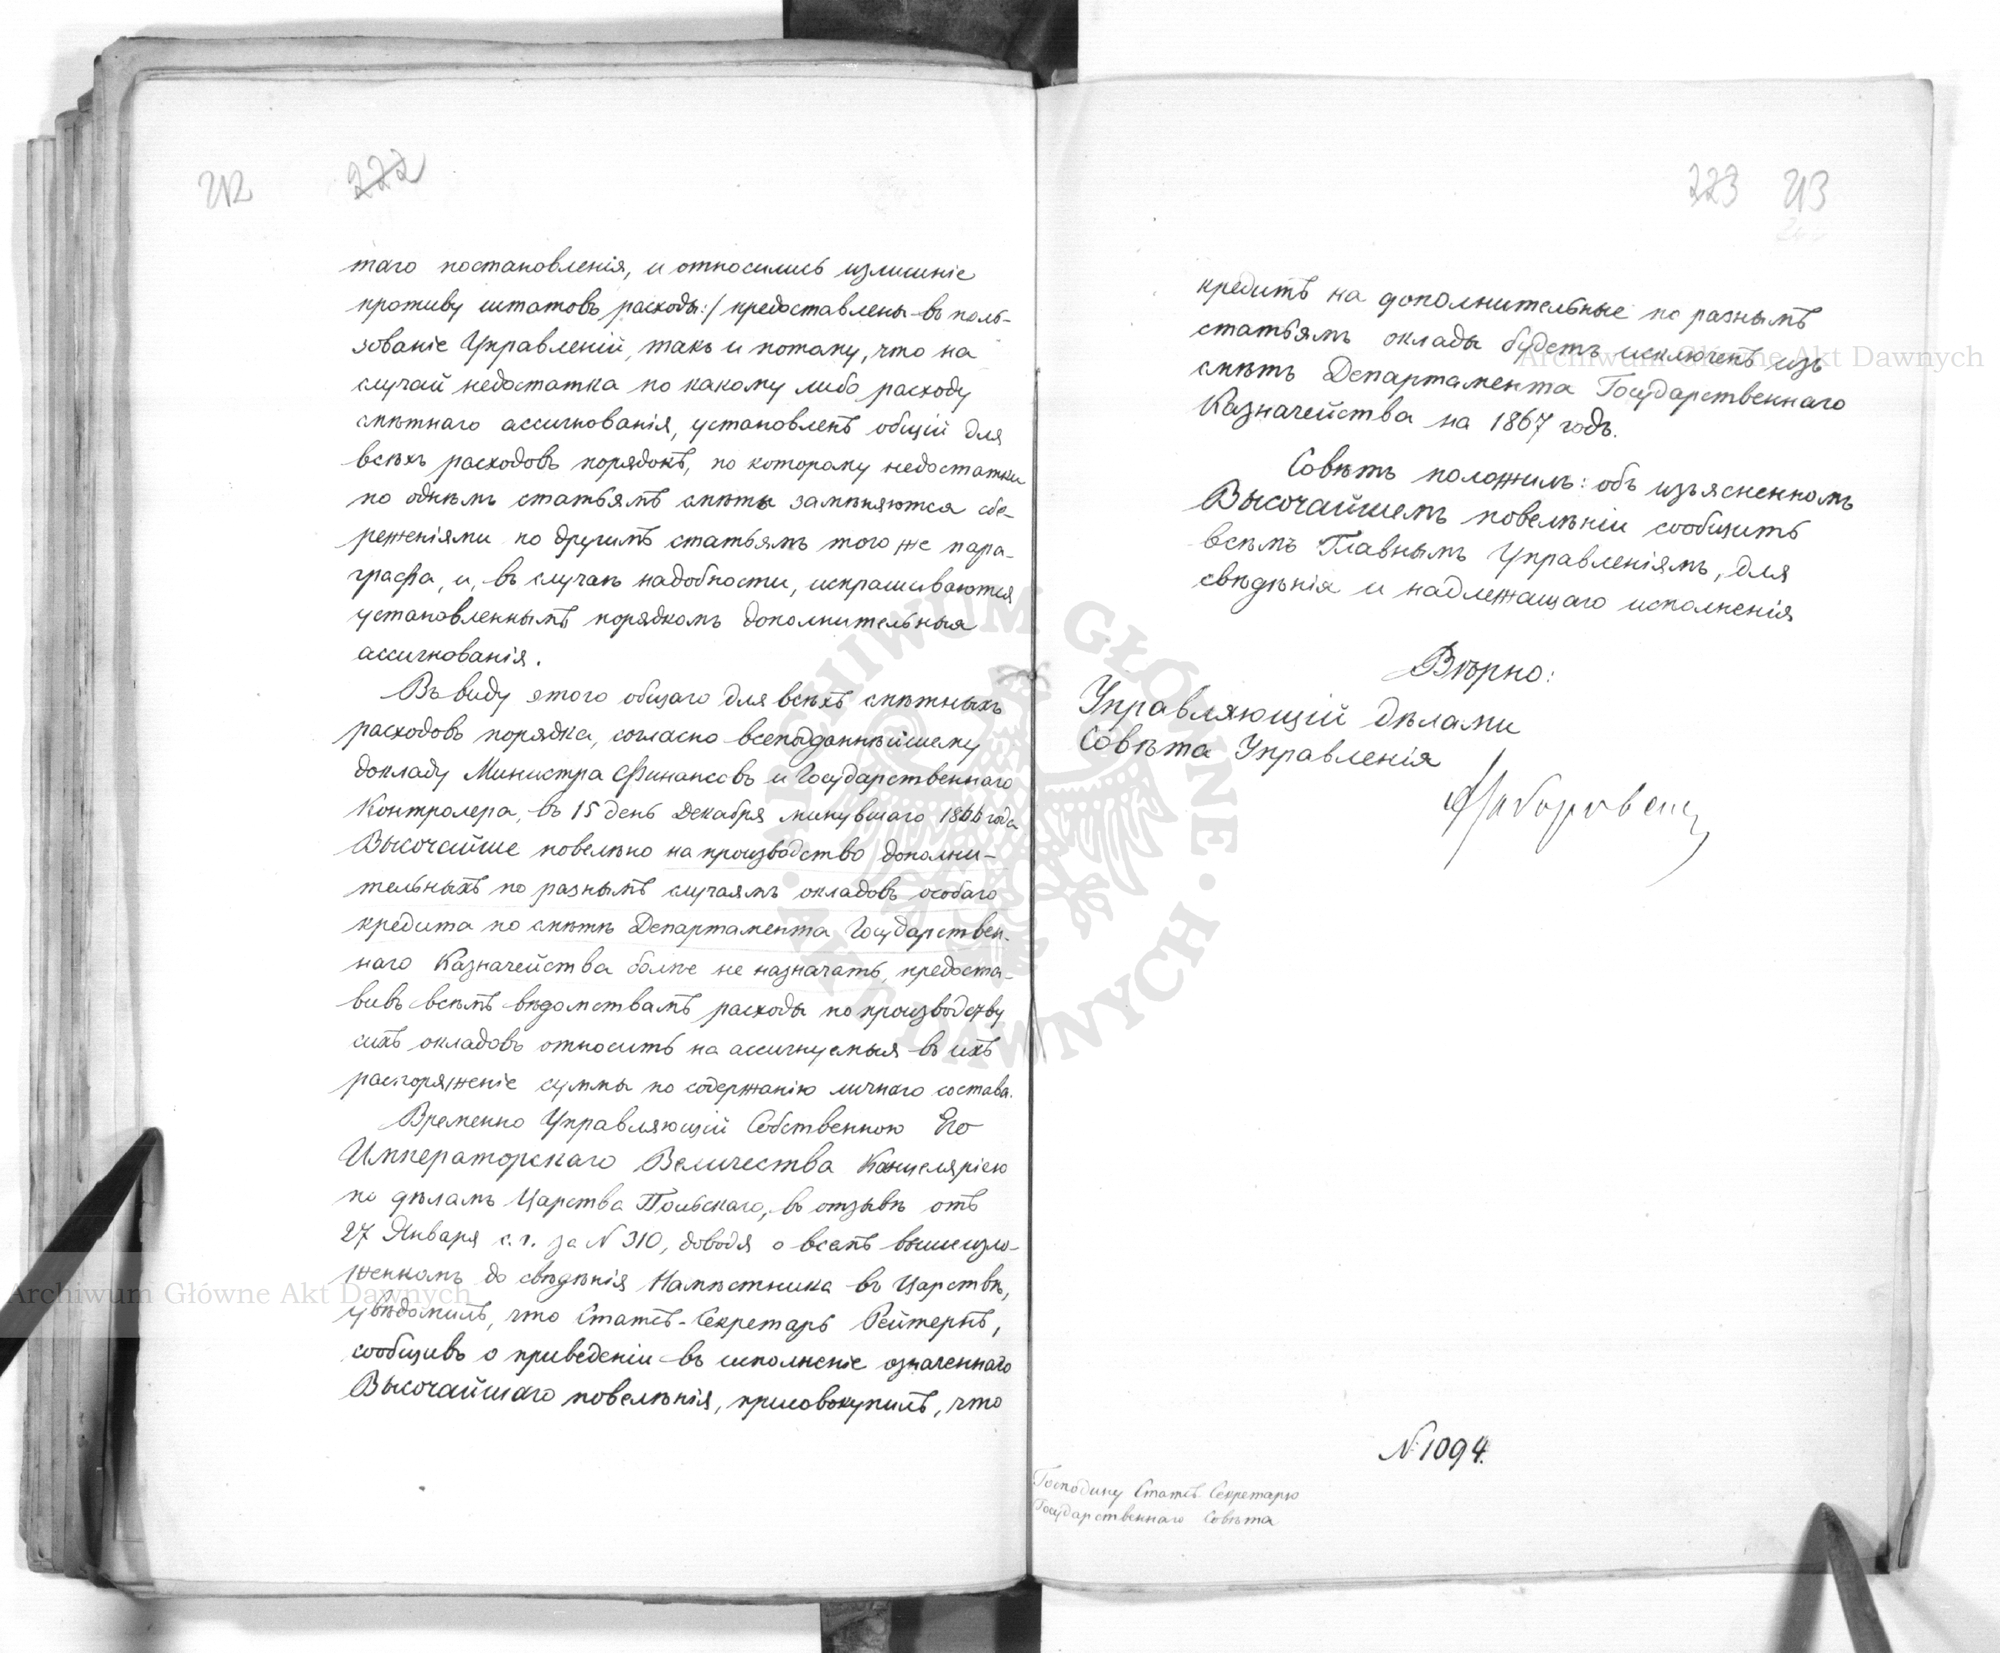 212 222
таго постановленія, и относились излишніе
противу штатовъ расходы:/ предоставлены въ поль-
зованіе Управленій, такъ и потому, что на
случай недостатка по какому либо расходу
смѣтнаго ассигнованія, установленъ общій для
всѣхъ расходовъ порядокъ, по которому недостатки
по однѣмъ статьямъ смѣты замѣняются сбе-
реженіями по другимъ статьямъ того же пара-
графа, и, въ случаѣ надобности, испрашиваются
установленнымъ порядкомъ дополнительныя
ассигнованія.
Въ виду этого общаго для всѣхъ смѣтныхъ
расходовъ порядка, согласно всеподданнѣйшему
докладу Министра Финансовъ и Государственнаго
Контролера, въ 15 день Декабря минувшаго 1866 года
Высочайше повелѣно на производство дополни-
тельныхъ по разнымъ случаямъ окладовъ особаго
кредита по смѣтѣ Департамента Государствен-
наго Казначейства болѣе не назначать, предоста-
вивъ всѣмъ вѣдомствамъ расходы по производству
сихъ окладовъ относить на ассигнуемыя въ ихъ
распоряженіе суммы по содержанію личнаго состава.
Временно Управляющій Собственною Его
Императорскаго Величества Канцеляріею
по дѣламъ Царства Польскаго, въ отзывѣ отъ
27 Января с. г. за N 310, доводя о всемъ вышеизло-
женномъ до свѣдѣнія Намѣстника въ Царствѣ,
увѣдомилъ, что Статсъ-Секретарь Рейтернъ,
сообщивъ о приведеніи въ исполненіе означеннаго
Высочайшаго повелѣнія, присовокупилъ, что
223 213
кредитъ на дополнительные по разнымъ
статьямъ оклады будетъ исключенъ изъ
смѣтъ Департамента Государственнаго
Казначейства на 1867 годъ.
Совѣтъ положилъ: объ изъясненномъ
Высочайшемъ повелѣніи сообщить
всѣмъ Главнымъ Управленіямъ, для
свѣдѣнія и надлежащаго исполненія
Вѣрно:
Управляющій дѣлами
Совѣта Управленія
N 1094.
Господину Статсъ-Секретарю
Государственнаго Совѣта
Archiwum Główne Akt Dawnych
Archiwum Główne Akt Dawnych
ARCHIWUM GŁÓWNE AKT DAWNYCH